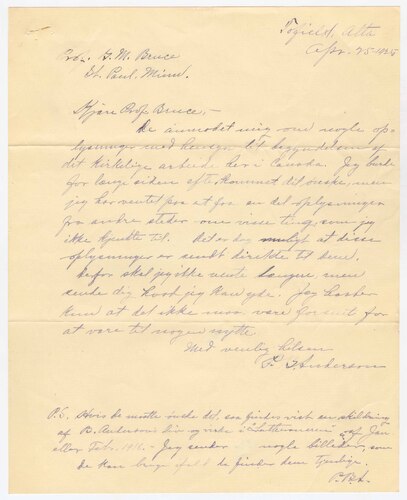 Tofield, Alta
Apr. 25 1925
Prof. G. M. Bruce
St. Paul, Minn.
Kjære Prof. Bruce,-
De anmodet mig om nogle op-
lysninger med hensyn til begyndelsen af
det kirkelige arbeide her i Canada. Jeg burde
for lenge siden efterkommet dit ønske, men
jeg har ventet paa at faa en del oplysninger
fra andre steder om visse ting, som jeg
ikke kjendte til. Det er dog muligt at disse
oplysninger er sendt direkte til dem.
Derfor skal jeg ikke vente længere men
sende dig hvad jeg kan yde. Jeg haaber
kun at det ikke maa være for sent for
at være til nogen nytte.
Med venlig hilsen
P. Anderson
P.S. Hvis de maatte ønske det, saa findes vist en skildring
af B. Andersons liv og virke i Lutheraneren af Jan.
eller Feb. 1916. - Jeg sender nogle billeder, som
de kan bruge ifald de finder dem tjenlige.
P.A.